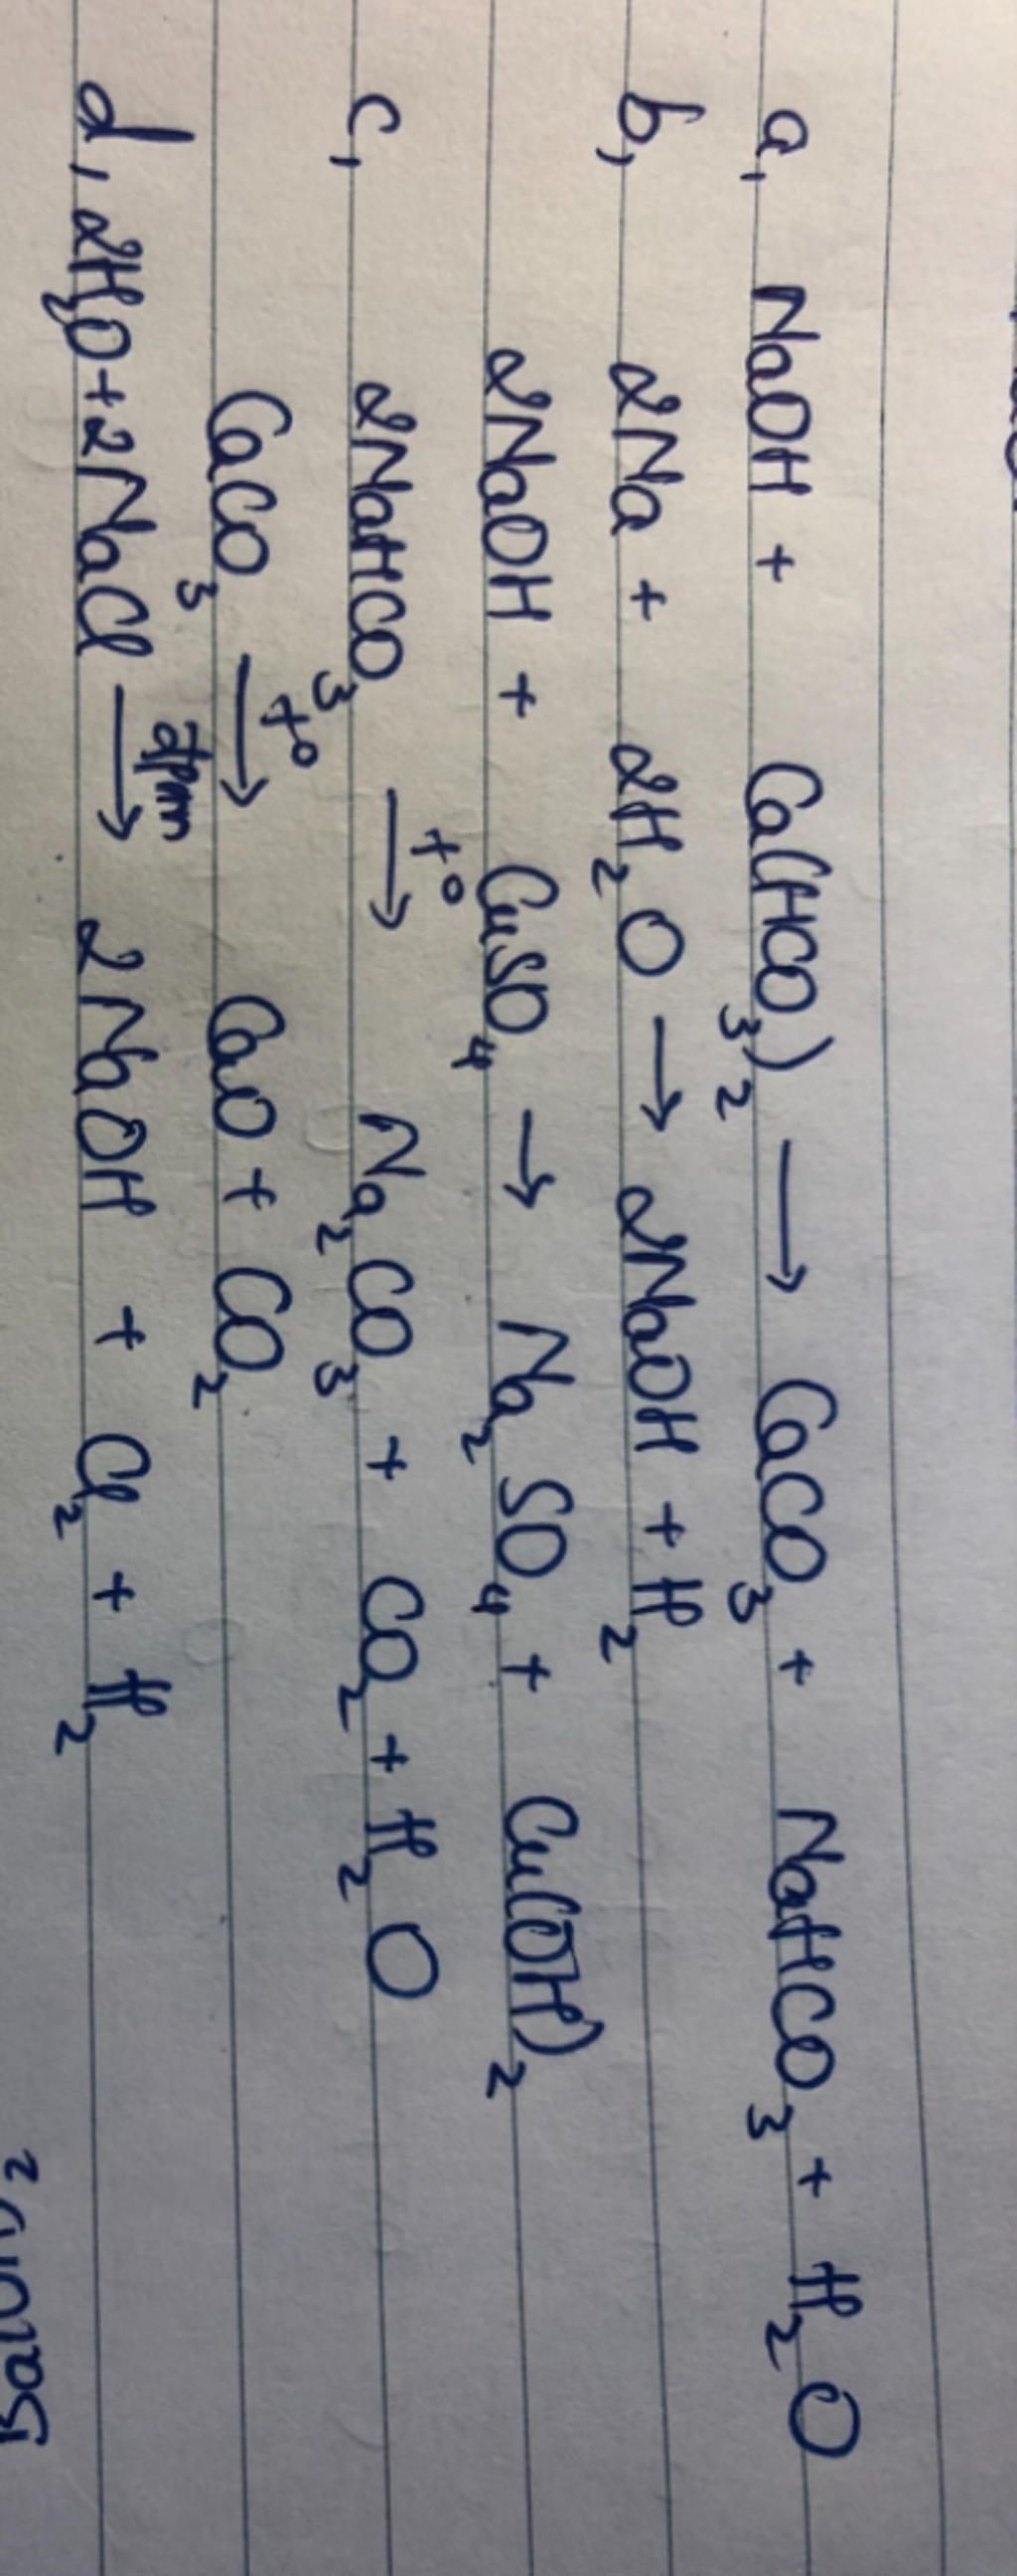 a, NaOH + Ca(HCO₃)₂ → CaCO₃ + NaHCO₃ + H₂O
b, 2Na + 2H₂O → 2NaOH + H₂
2NaOH + CuSO₄ → Na₂SO₄ + Cu(OH)₂
c, 2NaHCO₃ →(t°) Na₂CO₃ + CO₂ + H₂O
CaCO₃ →(t°) CaO + CO₂
d, 2H₂O + 2NaCl →(đpmn) 2NaOH + Cl₂ + H₂